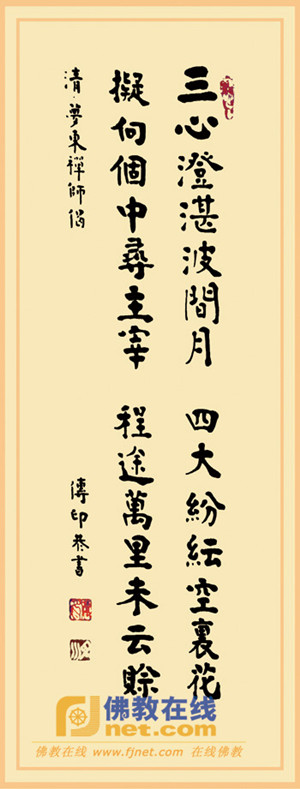 三心澄湛波間月 四大紛紜空裏花
擬向個中尋主宰 程途萬里未云賒
清·夢東禪師偈
傳印恭書
佛教在线
net.com
佛教在线 www.fjnet.com 在线佛教